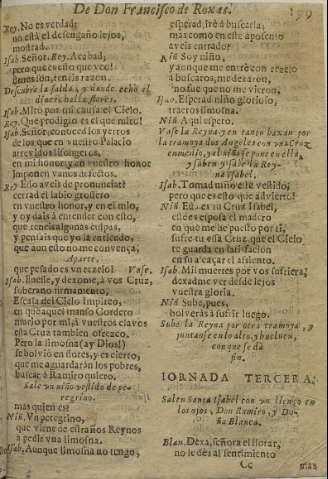 De Don Francisco de Roxas.
Rey. No es verdad;
no està el desengaño lejos,
mostrad.
Isab. Señor. Rey. Acabad,
pero què es esto que veo!
flores son, teneis razon.
Descubre la falda, y donde echò el
dinero halla flores.
Isab. Mirò por mi causa el Cielo.
Rey. Què prodigio es el que miro!
Isab. Señor, conoced los yerros
de los que en vuestro Palacio
atrevidos lisongeros,
en mi honor, y en vuestro honor
imponen vanos defectos.
Rey Esso aveis de pronunciar?
cerrad el labio grossero
en vuestro honor, y en el mio,
y oy dais à entender con esto,
que teneis algunas culpas,
y pensais que yo la entiendo,
que aun esto no me convença,
Aparte.
que pesado es vn rezelo! Vase.
Isab. Fuesse, y dexome, à vos Cruz,
soberano firmamento,
Escala del Cielo Impireo,
en quien aquel manso Cordero
murio por mi, à vuestros clavos
esta Cruz tambien ofrezco.
Pero la limosna (ay Dios!)
se bolviò en flores, y es cierto,
que me aguardaràn los pobres,
buscar à Ramiro quiero.
Sale vn niño vestido de pe-
regrino.
mas quien es?
Niñ. Vn peregrino,
que viene de estraños Reynos
à pedir vna limosna.
Isab. Aunque limosna no tengo,
esperad, irè à buscarla;
mas como en este aposento
aveis entrado?
Niñ Soy niño,
y aunque me entrè con rezelo
à buscaros, me dexaron,
no fue que no me vieron.
Isab. Esperad niño glorioso,
traeros limosna.
Niñ Aqui espero.
Vase la Reyna, y en tanto baxan por
la tramoya dos Angeles con vna Cruz
en
y salen
na Isabel.
Isab. Tomad niño este vestido,
pero què es esto que advierto!
Niñ. Esta es tu Cruz Isabel,
este es esposa el madero
en què me he puesto por ti,
sufre tu essa Cruz que el Cielo
te guarda en satisfacion
en su alcaçar el assiento.
Isab. Mil muertes por vos sufriera,
dexadme ver desde lejos
vuestra gloria.
Niñ Sube, pues,
bolveràs à subir luego.
Sube la Reyna por otra tramoya, y
juntanse en lo alto, y buelven,
con que se dà
fin.
IORNADA TERCERA.
Salen Santa Isabel con vn lienço en
los ojos, Don Ramiro, y Do-
ña Blanca.
Blan. Dexa, señora el llorar,
no le dès al sentimiento
Cc
mas